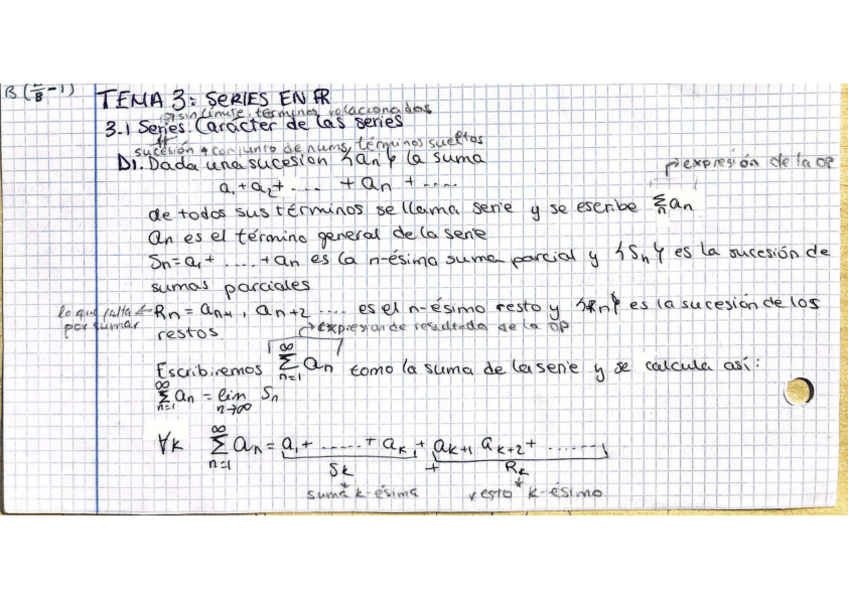 B (n/B - 1)
TEMA 3: SERIES EN ℝ
↗ sin límite, términos relacionados
3.1 Series. Carácter de las series
sucesión → conjunto de nums, términos sueltos
D1. Dada una sucesion {an} la suma
→ expresión de la OP
a1 + a2 + .... + an + ....
de todos sus términos se llama serie y se escribe Σn an
an es el término general de la serie
Sn = a1 + ..... + an es la n-ésima suma parcial y {Sn} es la sucesión de
sumas parciales
lo que falta por sumar ← Rn = an+1, an+2 .... es el n-ésimo resto y {Rn} es la sucesión de los
restos.
→ expresion de resultado de la OP
Escribiremos ∞Σn=1 an como la suma de la serie y se calcula así:
∞Σn=1 an = lim n→∞ Sn
∀k ∞Σn=1 an = a1 + ...... + ak + ak+1 ak+2 + .......
Sk + Rk
suma k-ésima resto k-ésimo